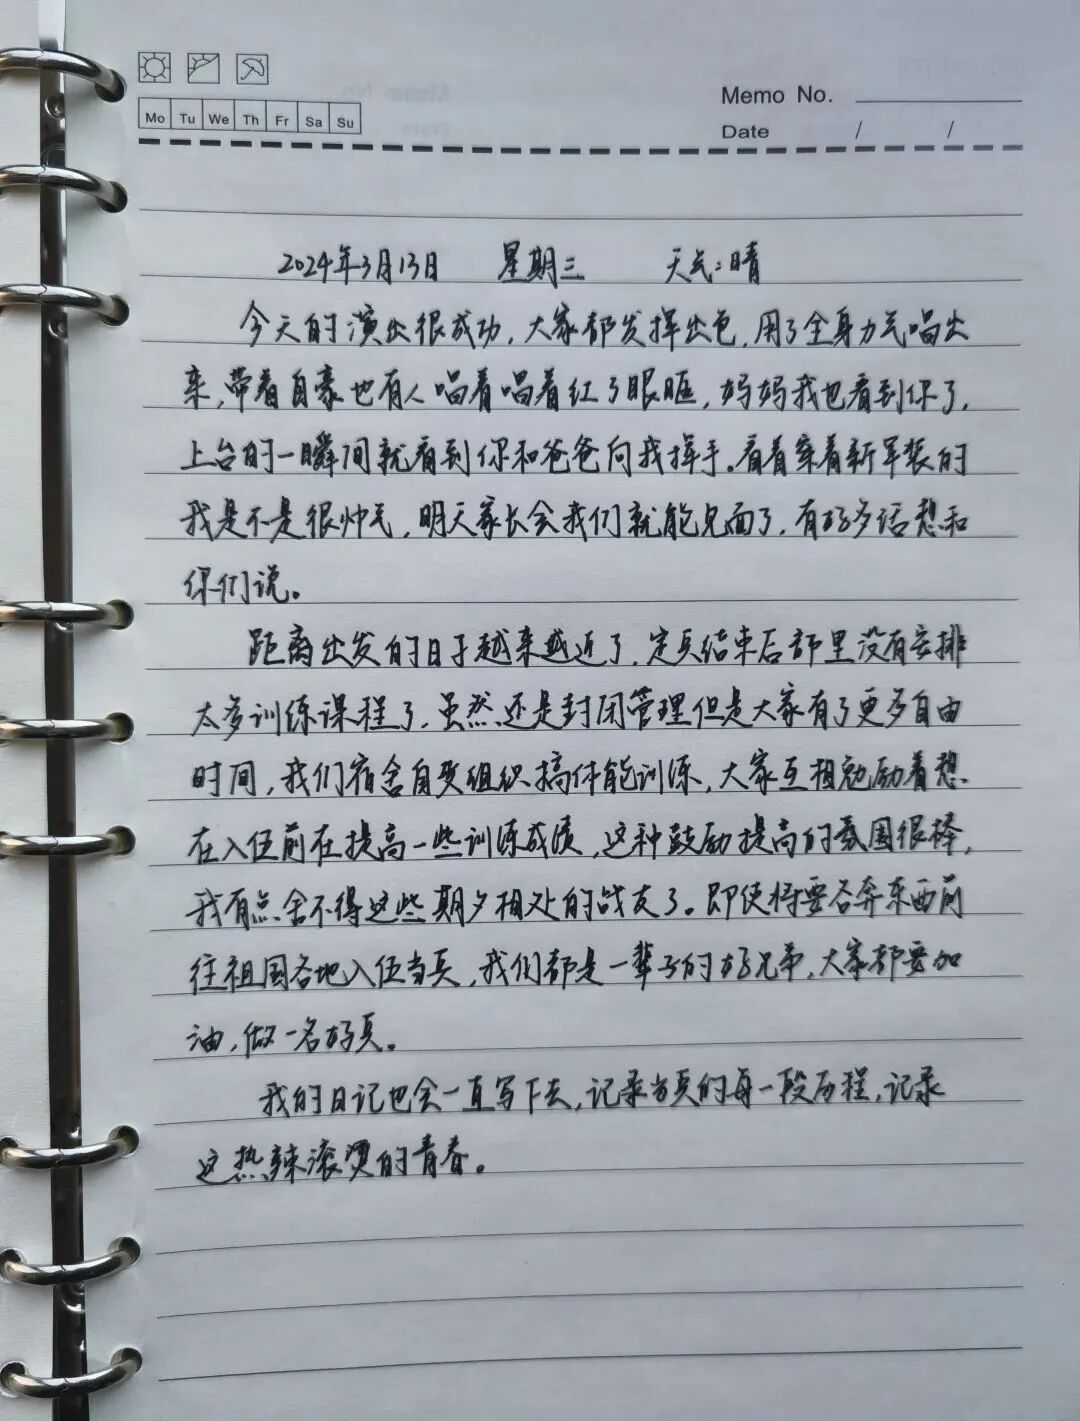 Mo Tu We Th Fr Sa Su
Memo No.
Date / /
2024年3月13日 星期三 天气:晴
今天的演出很成功，大家都发挥出色，用了全身力气唱出
来，带着自豪也有人唱着唱着红了眼眶，妈妈我也看到你了，
上台的一瞬间就看到你和爸爸向我挥手。看着穿着新军装的
我是不是很帅气，明天家长会我们就能见面了，有好多话想和
你们说。
距离出发的日子越来越近了，定兵结束后部里没有安排
太多训练课程了，虽然还是封闭管理但是大家有了更多自由
时间，我们宿舍自发组织搞体能训练，大家互相勉励着想
在入伍前在提高一些训练成绩，这种鼓励提高的氛围很棒，
我有点舍不得这些期夕相处的战友了。即使将要各奔东西前
往祖国各地入伍当兵，我们都是一辈子的好兄弟，大家都要加
油，做一名好兵。
我的日记也会一直写下去，记录当兵的每一段历程，记录
这热辣滚烫的青春。